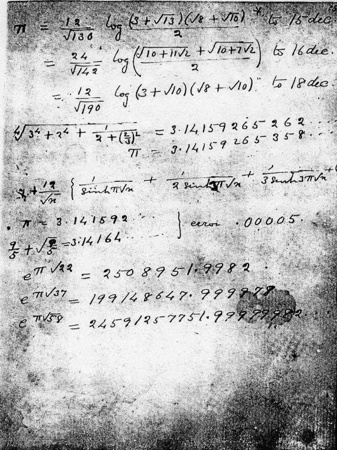 π = 12/√130 log (3+√13)(√8+√10)/2 to 15 dec.
= 24/√142 log (√10+11√2 + √10+7√2)/2 to 16 dec.
= 12/√190 log (3+√10)(√8+√10) to 18 dec.
∜3⁴+2⁴+ 1/2+(2/3)² = 3.14159265262...
π = 3.14159265358...
+ 12/√n { 1/sinh π√n + 1/2 sinh 2π√n + 1/3 sinh 3π√n +
π = 3.141592 ... } error .00005.
9/5 + √9/5 = 3.14164...
e^π√22 = 2508951.9982
e^π√37 = 199148647.999978
e^π√58 = 24591257751.99999982